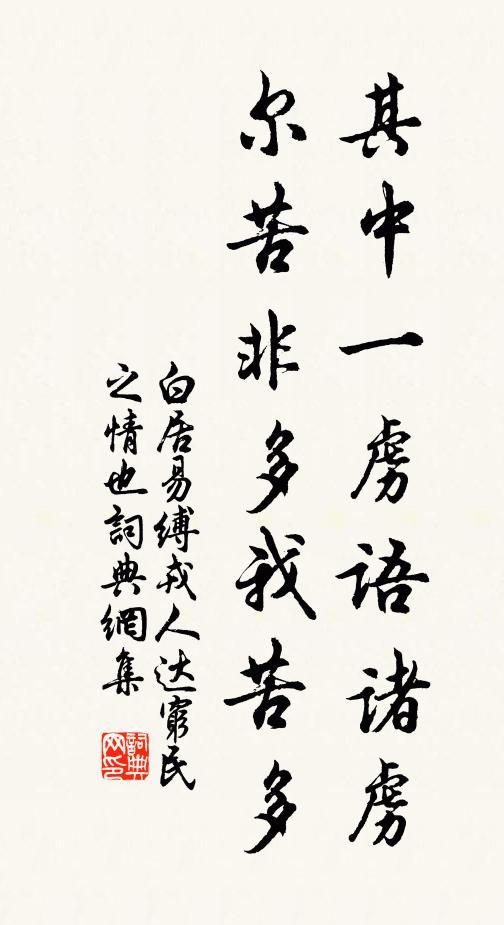 其中一虜語諸虜
尔苦非多我苦多
白居易縛戎人达窮民
之情也詞典網集
詞典
网印